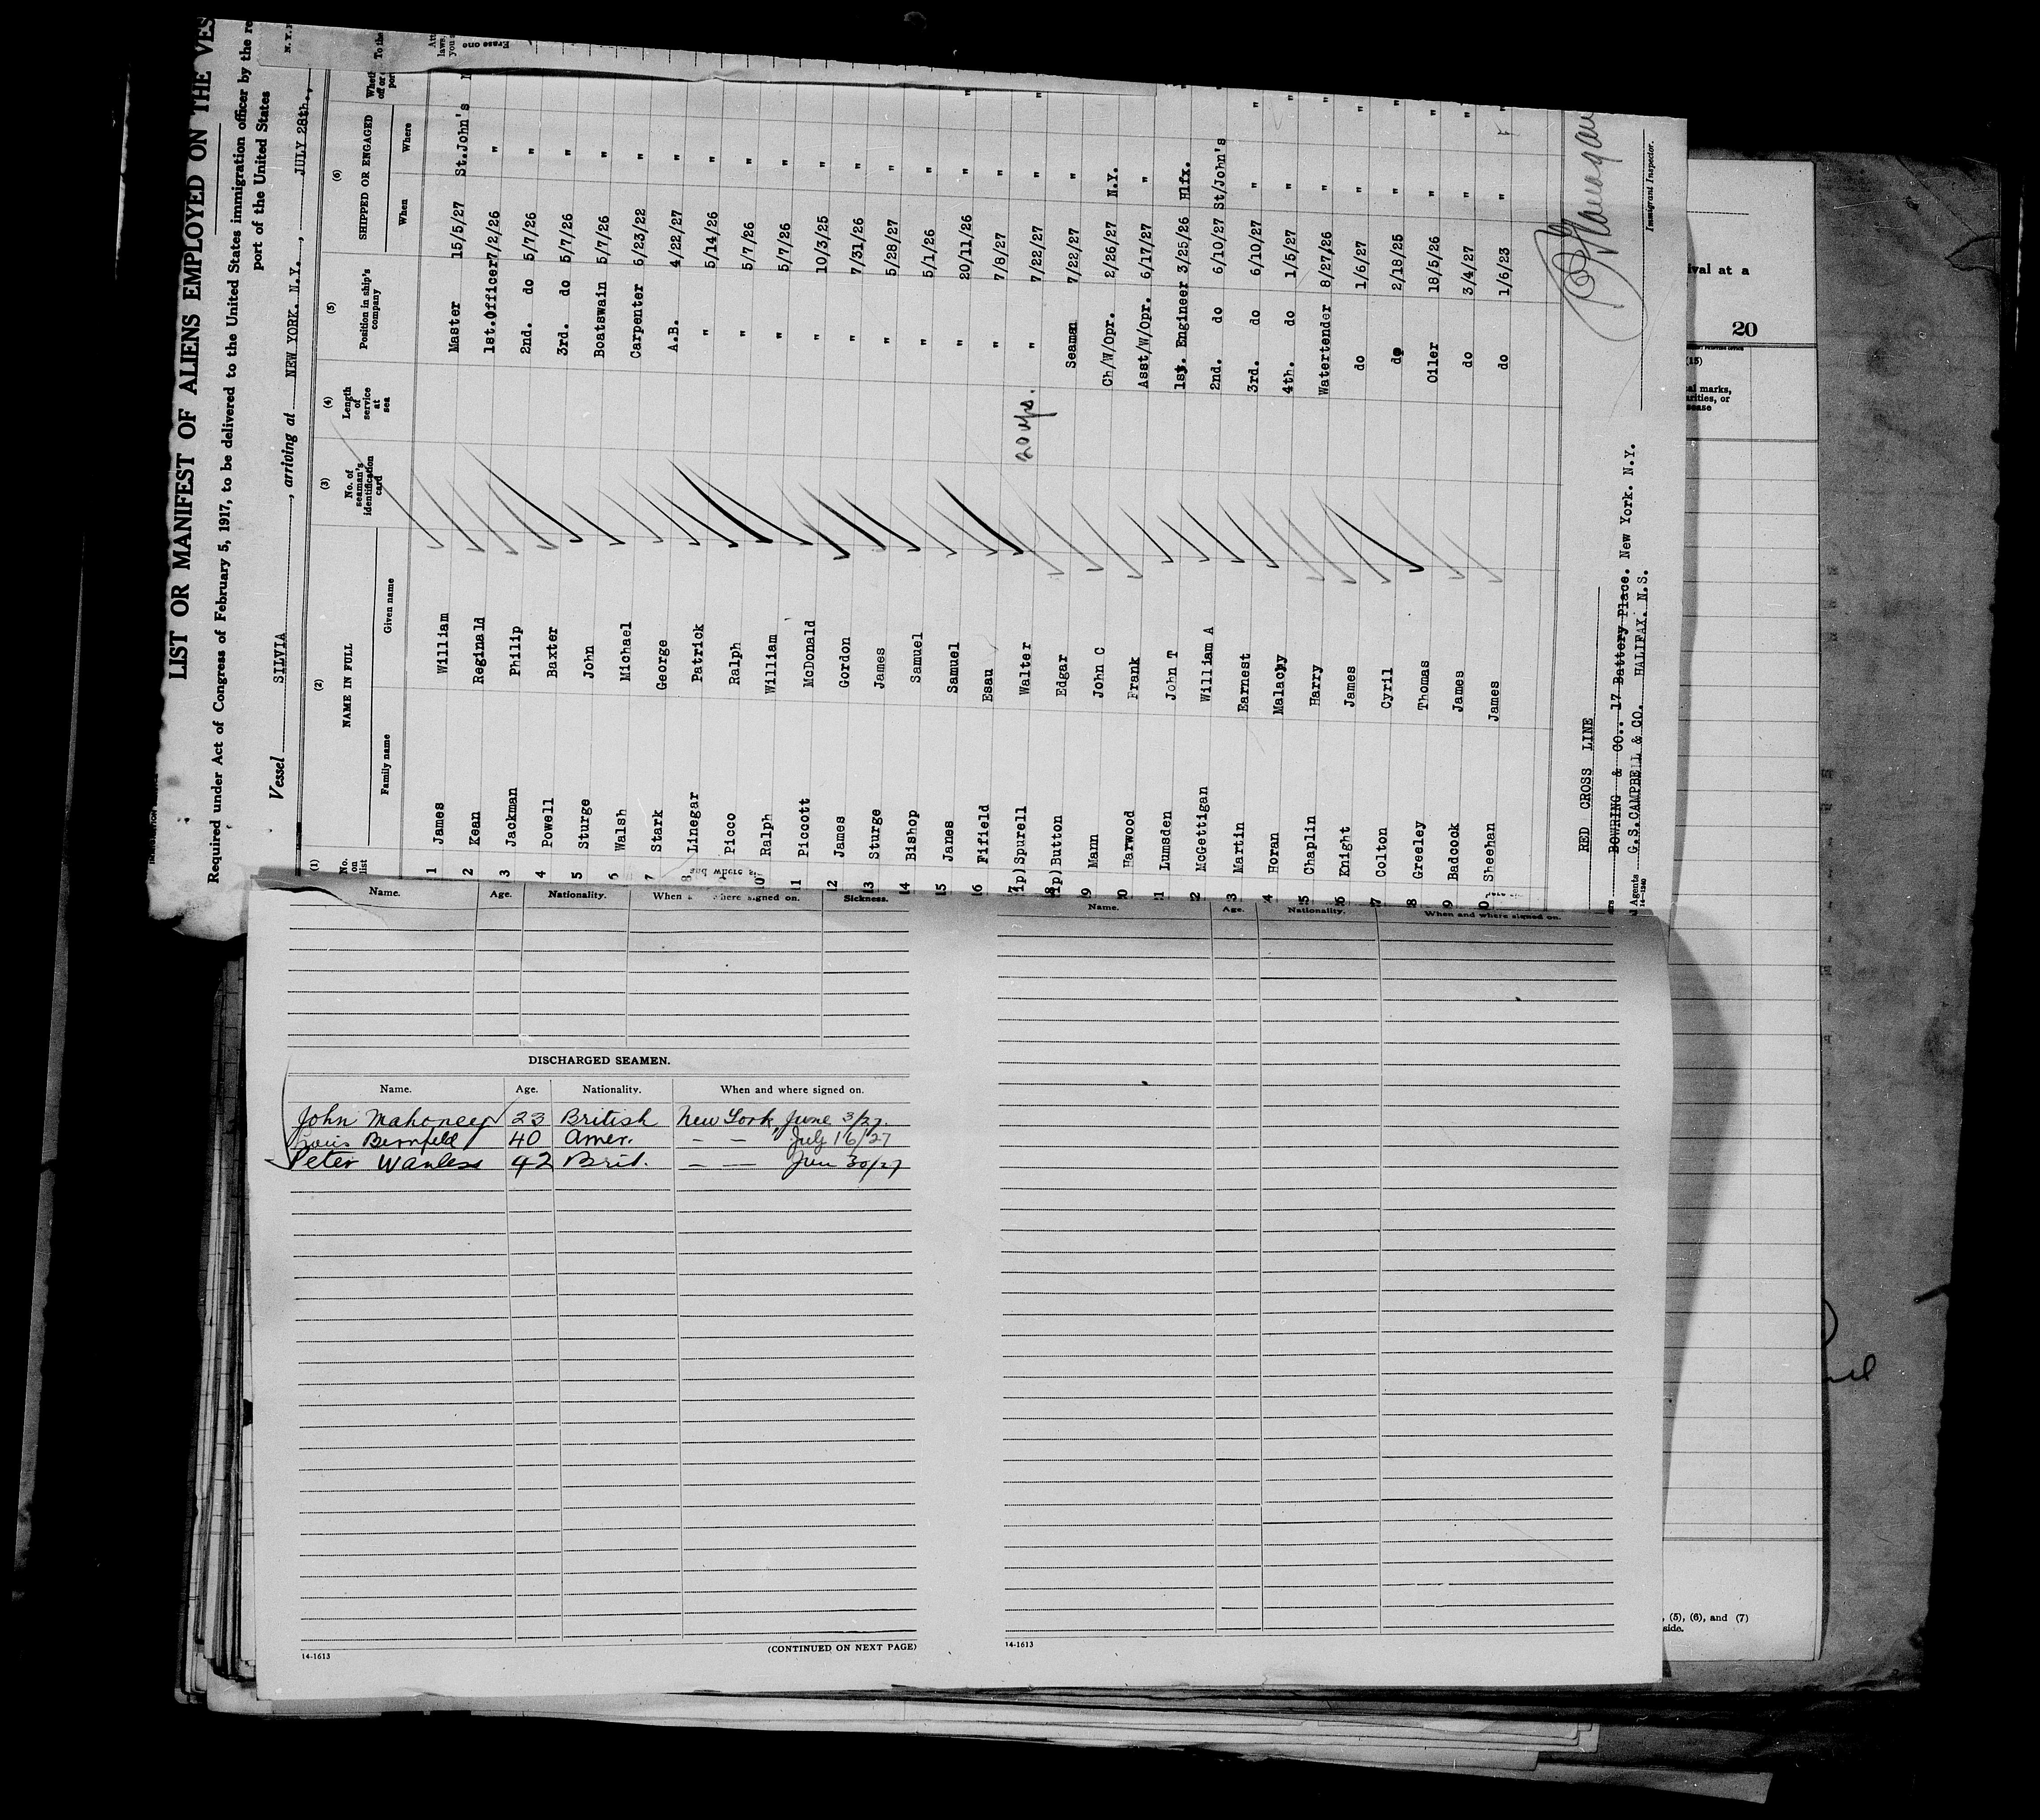 LIST OR MANIFEST OF ALIENS EMPLOYED ON THE VES
Required under Act of Congress of February 5, 1917, to be delivered to the United States immigration officer by the re
port of the United States
Vessel SILVIA, arriving at NEW YORK. N.Y., JULY 28th., N.Y.
(1) (2) (3) (4) (5) (6)
No. on list NAME IN FULL Family name Given name No. of seaman's identification card Length of service at sea Position in ship's company SHIPPED OR ENGAGED When Where
1 James William Master 15/5/27 St.John's
2 Kean Reginald 1st.Officer 7/2/26 "
3 Jackman Philip 2nd. do 5/7/26 "
4 Powell Baxter 3rd. do 5/7/26 "
5 Sturge John Boatswain 5/7/26 "
6 Walsh Michael Carpenter 6/23/22 "
7 Stark George A.B. 4/22/27 "
8 Linegar Patrick " 5/14/26 "
Picco Ralph " 5/7/26 "
0 Ralph William " 5/7/26 "
11 Piccott McDonald " 10/3/25 "
12 James Gordon " 7/31/26 "
13 Sturge James " 5/28/27 "
14 Bishop Samuel " 5/1/26 "
15 Janes Samuel " 20/11/26 " "
16 Fifield Esau " 7/8/27 "
17 ip)Spurell Walter 20 yrs. " 7/22/27 " "
18 ip)Button Edgar Seaman 7/22/27 "
9 Mann John C Ch/W/Opr. 2/26/27 N.Y.
0 Harwood Frank Asst/W/Opr. 6/17/27 "
1 Lumsden John T 1st. Engineer 3/25/26 Hlfx. "
2 McGettigan William A 2nd. do 6/10/27 St/John's "
3 Martin Earnest 3rd. do 6/10/27 " "
4 Horan Malachy 4th. do 1/5/27 " "
5 Chaplin Harry Watertender 8/27/26 " "
6 Knight James do 1/6/27 " "
7 Colton Cyril do 2/18/25 " "
8 Greeley Thomas Oiler 18/5/26 " "
9 Badcock James do 3/4/27 " "
0 Sheehan James do 1/6/23 " "
RED CROSS LINE
BOWRING & CO.. 17 Battery Place. New York. N.Y.
Agents G.S.CAMPBELL & CO. HALIFAX. N.S.
14-1240
Immigrant Inspector.
Name. Age. Nationality. When where signed on. Sickness.
and where si
DISCHARGED SEAMEN.
Name. Age. Nationality. When and where signed on.
John Mahoney 23 British New York, June 3/27.
Louis Bernfeld 40 Amer. — — July 16/27
Peter Wanless 42 Brit. — — Jun 30/27
(CONTINUED ON NEXT PAGE)
14-1613
Name. Age. Nationality. When and where signed on.
14-1613
ival at a
20
(15)
al marks,
arities, or
sease
, (5), (6), and (7)
side.